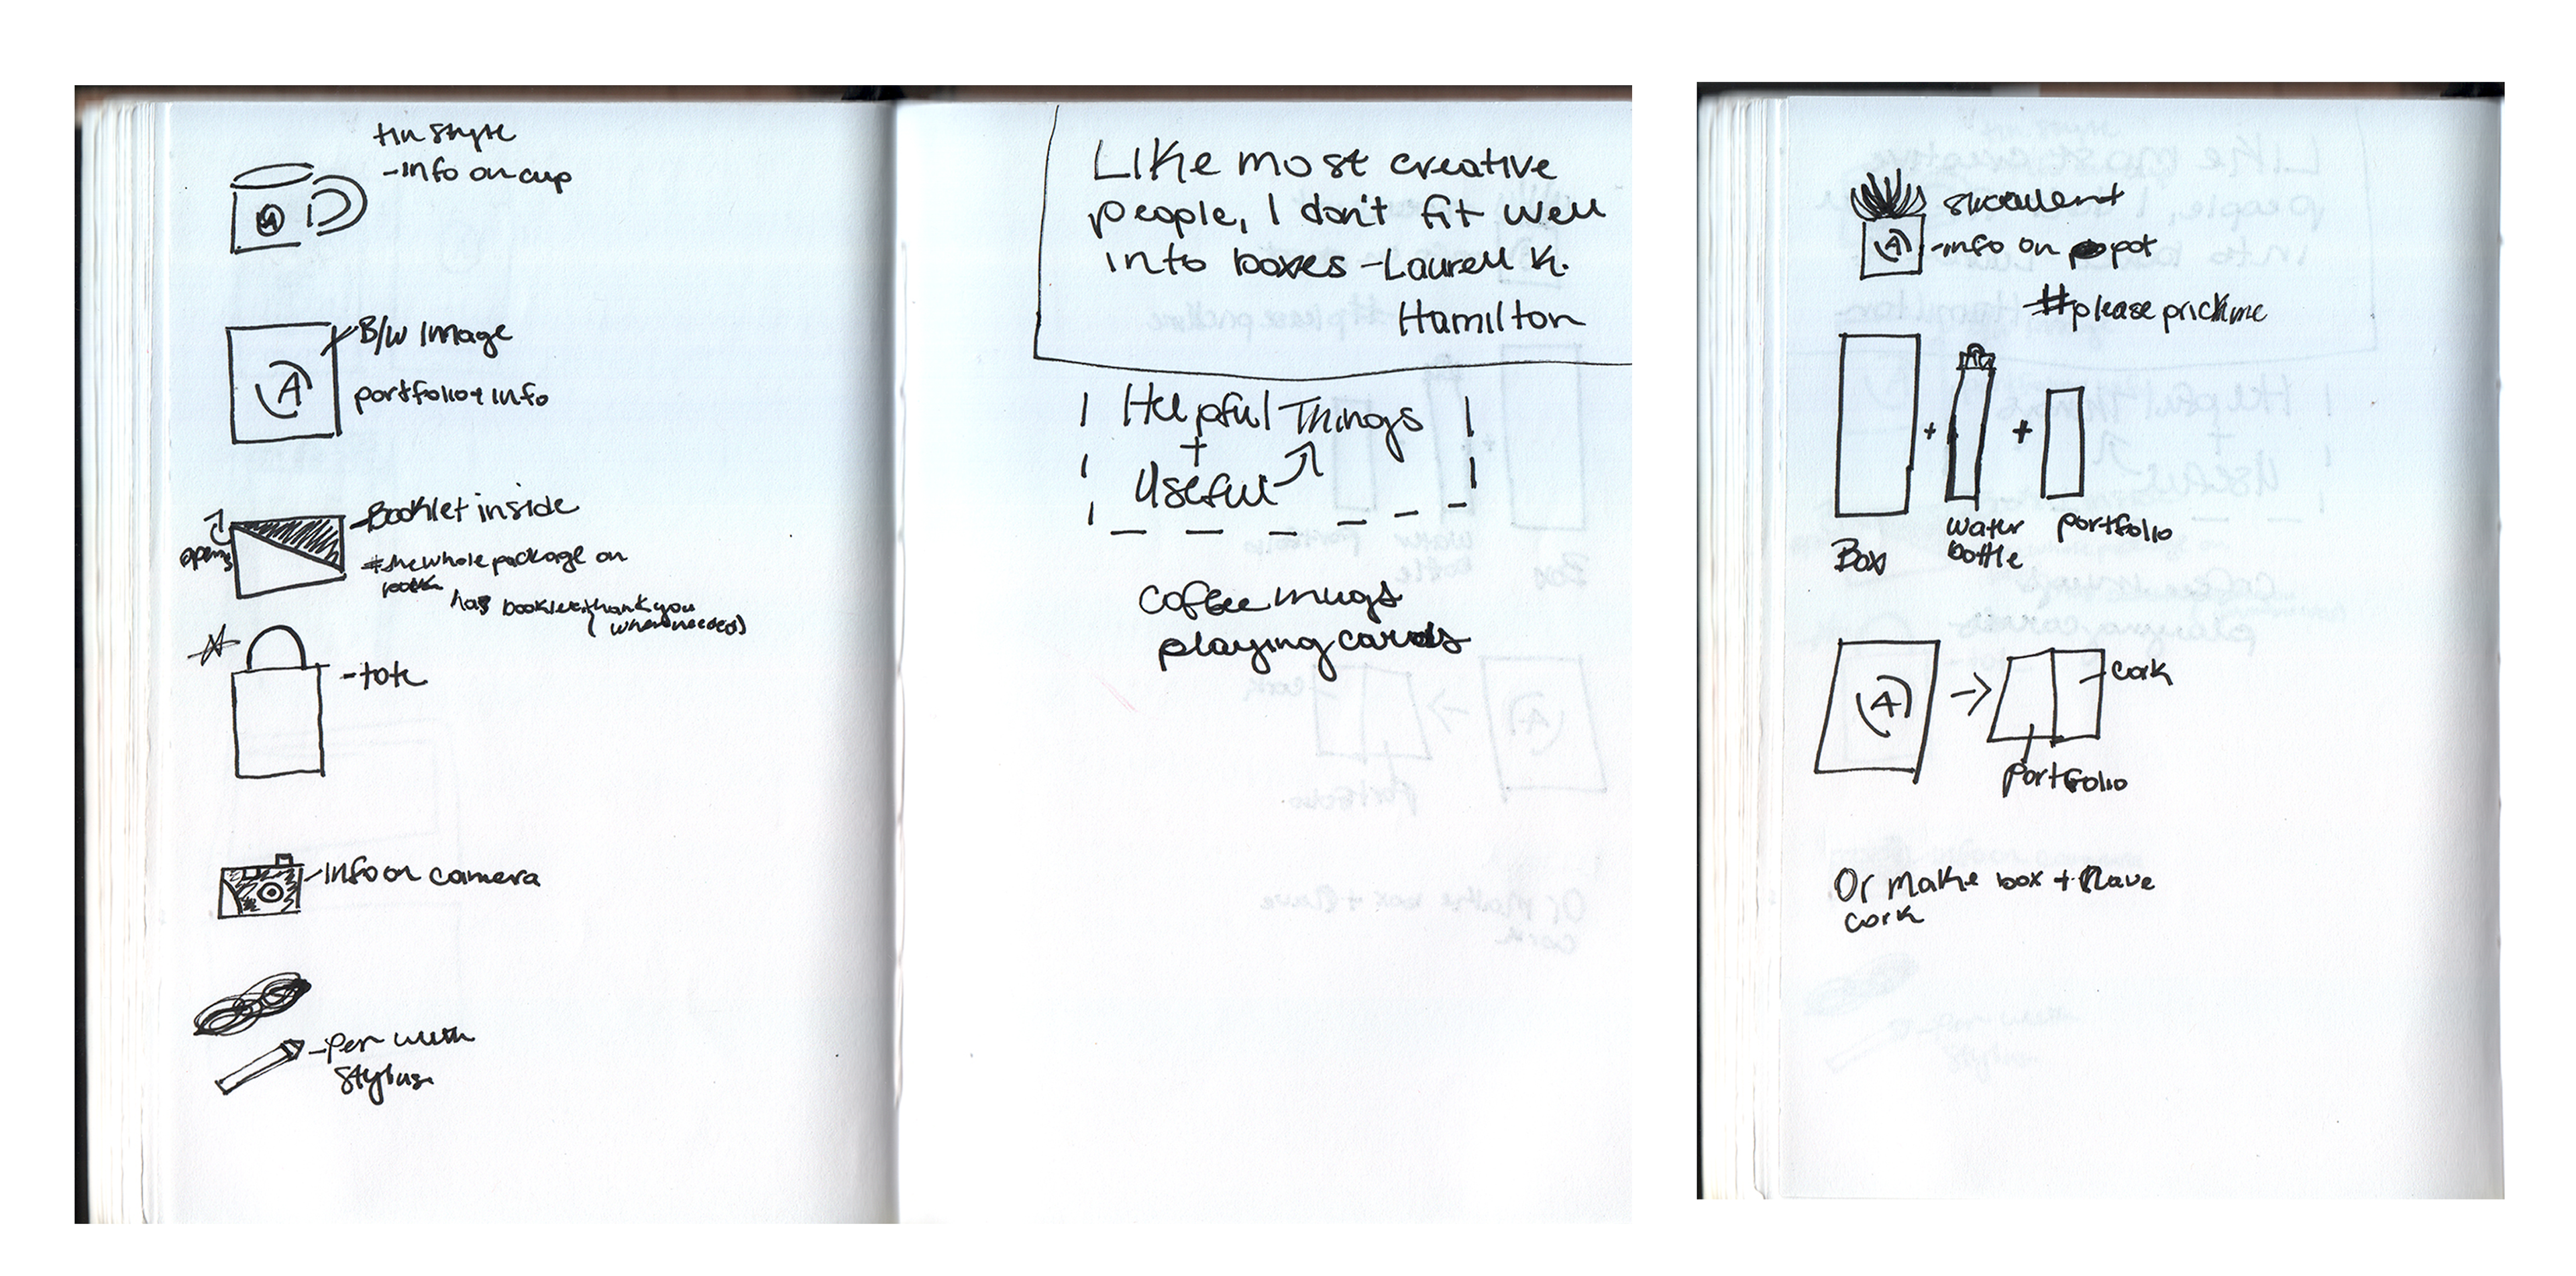 tin style
-info on cup
A
B/W image
A
portfolio + info
-Booklet inside
opens
#thewholepackage on
has booklet + thank you
(when needed)
-tote
-Info on camera
-Pen with
stylus
Like most creative
people, I don't fit well
into boxes -Laurell K.
Hamilton
Helpful Things
+
Useful
coffee mugs
playing cards
succulent
A
-info on pot
#pleaseprickme
+
+
Box
water
bottle
portfolio
A
cork
portfolio
Or make box + have
cork